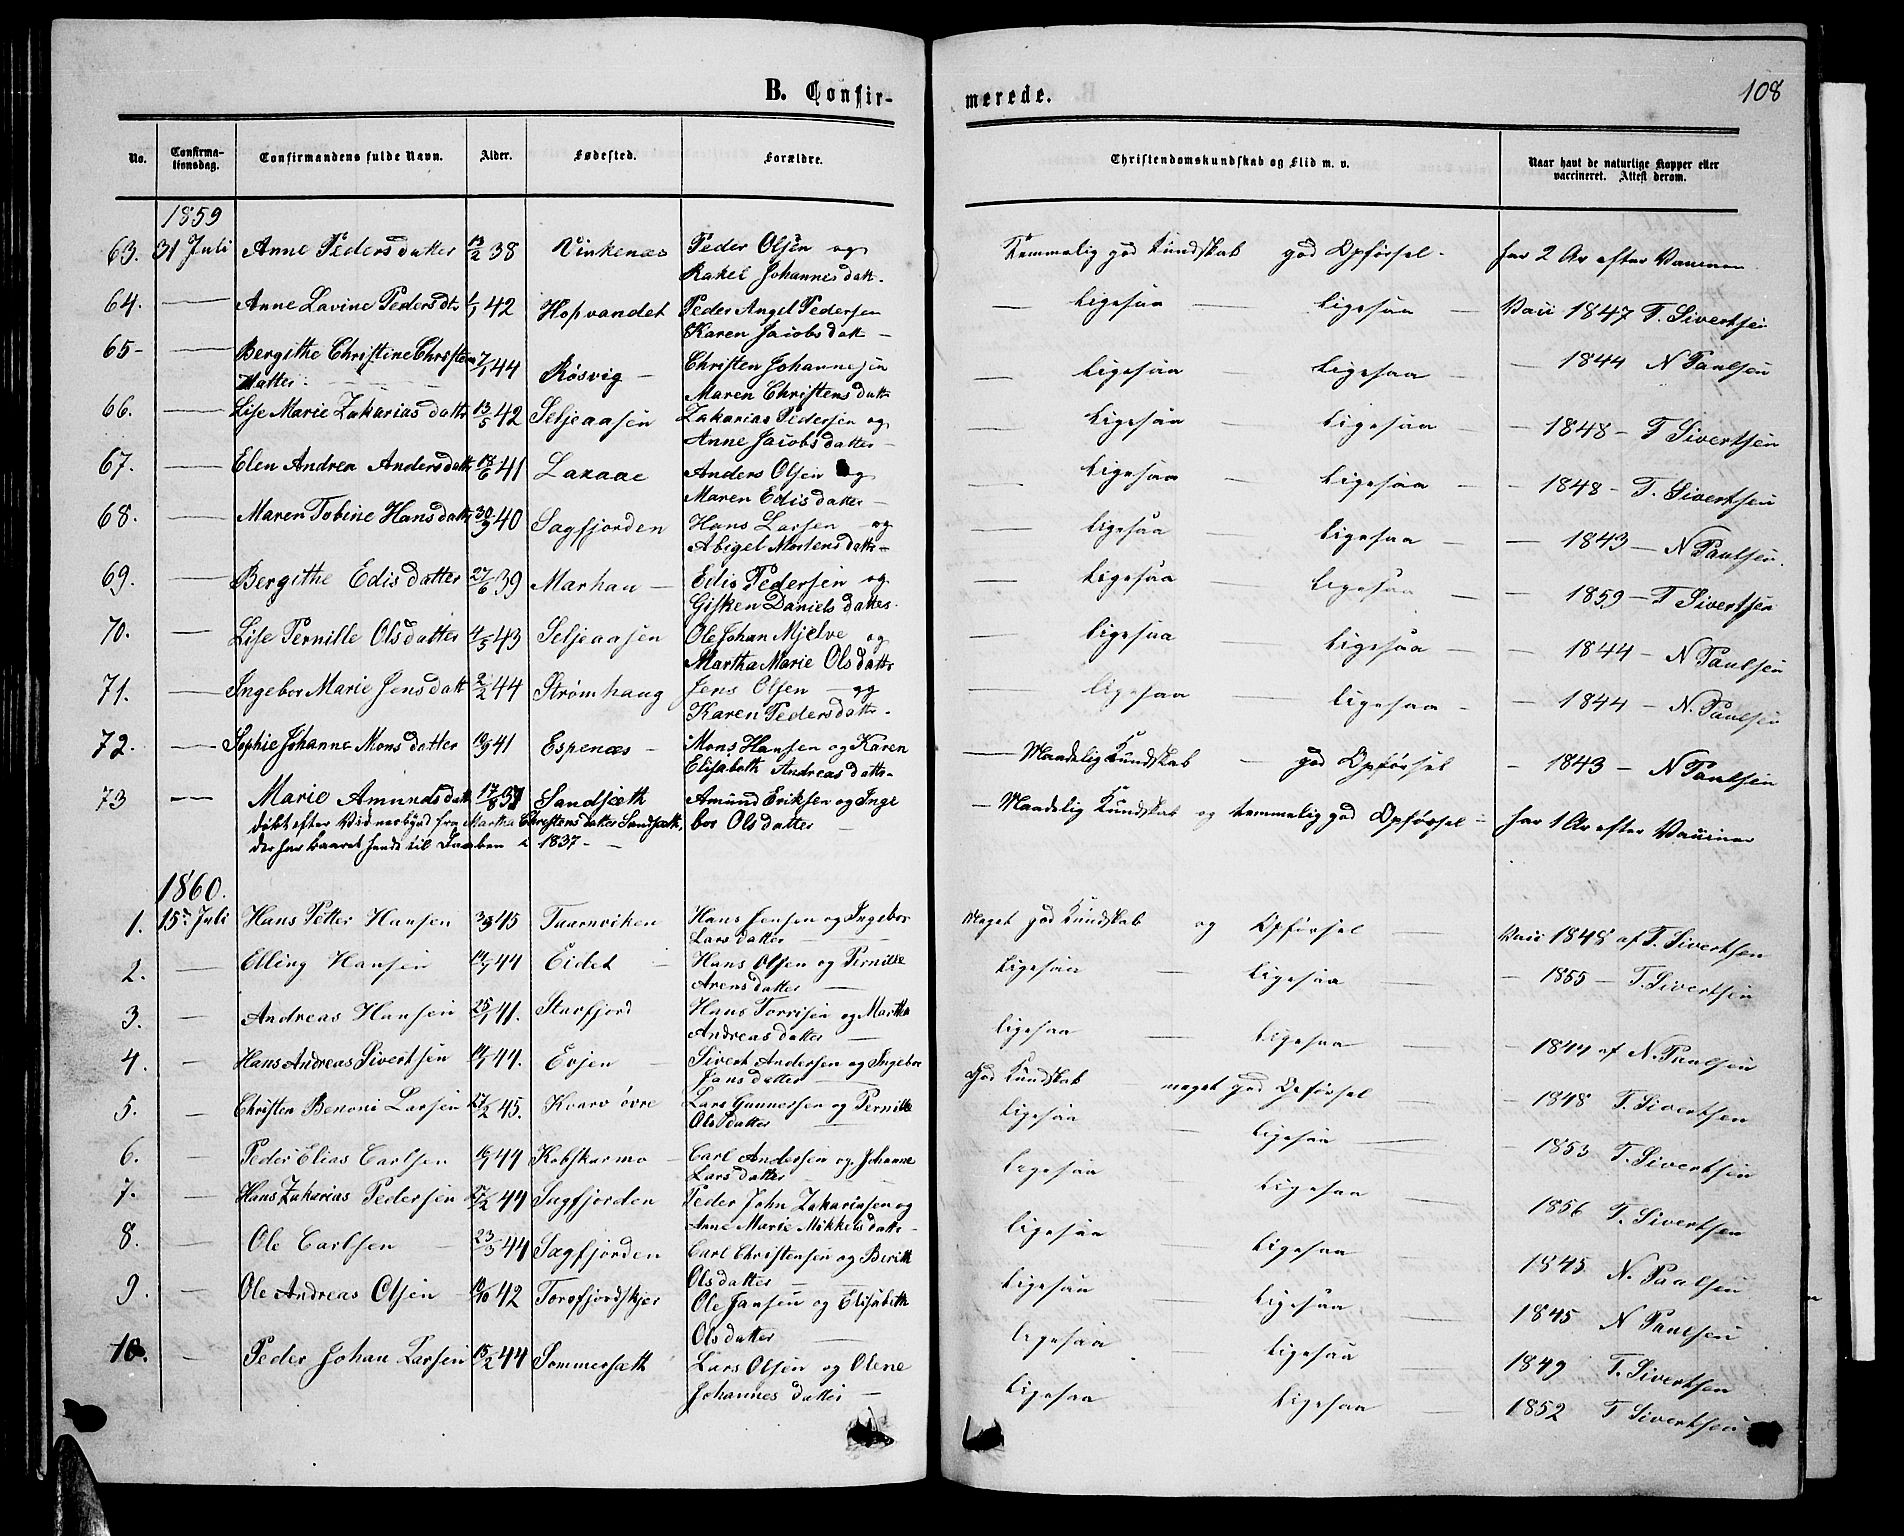 108
B. Confirmerede.
No. Confirmationsdag. Confirmandens fulde Navn. Alder. Fødested. Forældre. Christendomskundskab og Flid m. v. Naar havt de naturlige Kopper eller vaccineret. Attest derom.
1859
63. 31 Juli Anne Pedersdatter 13/2 38 Vinkenæs Peder Olsen og Rakel Johannesdatt. Temmelig god Kundskab god Opførsel - har 2 Ar efter
64. — Anne Lavine Pedersdtr 42 Hopvandet Peder Angel Pedersen Karen Jacobsdatt — — Ligesaa — Ligesaa — Vacc 1847 T. Sivertsen
65 - — Bergithe Christine Christensdatter 7/1 44 Røsvig — Christen Johannesen Maren Christensdatt — Ligesaa — Ligesaa — — 1844 N Paulsen
66. — Lise Marie Zakariasdatter 13/5 42 Seljeaasen Zakarias Pedersen og Anne Jacobsdatter — — Ligesaa — Ligesaa — — 1848 - T Sivertsen
67. — Elen Andrea Andersdatt 18/6 41 Laxaae Anders Olsen og Maren Edisdatter — — Ligesaa — Ligesaa — — 1848 - T. Sivertsen
68. — Maren Tobine Hansdatter 30/9 40 Sagfjorden Hans Larsen — og Abigel Mortensdatter — — Ligesaa — Ligesaa — — 1843 — N Paulsen.
69. — Bergithe Edisdatter 27/6 39 Marhau — Edis Pedersen og Gisken Danielsdatter. — Ligesaa — Ligesaa — — 1859 — T Sivertsen
70. — Lise Pernille Olsdatter 4/5 43 Seljeaasen Ole Johan Mjelve og Martha Marie Olsdatter — Ligesaa — Ligesaa — — 1844 — N Paulsen
71. — Ingebor Marie Jensdatt 2/2 44 Strømhaug Jens Olsen — og Karen Pedersdatter. — Ligesaa — Ligesaa — — 1844 — N. Paulsen
72. — Sophie Johanna Monsdatter 10/9 41 Espenæs — Mons Hansen og Karen Elisabeth Andreasdatter. — Maadelig Kundskab — god Opførsel — 1843 — N Paulsen
73 — Marie Amundsdatt 17/8 Sandsæth Amund Eriksen og Ingebor Olsdatter — — Maadelig Kundskab og temmelig god Opførsel — har 1 Ar efter
døbt efter Vidnesbyrd fra Martha Christensdatter Sandsæth,
der har baaret hende til Daaben i 1837 -
1860.
1. 15de Juli Hans Petter Hansen 3/3 45 Taarnviken Hans Jensen og Ingebor Larsdatter — Meget god Kundskab og Opførsel — Vacc 1848 af T. Sivertsen
2. — Elling Hansen 44 Eidet — Hans Olsen og Pernille Arensdatter — Ligesaa — Ligesaa — — 1855 — T. Sivertsen
3. — Andreas Hansen 25/1 41. Storfjord Hans Torrisen og Martha Andreasdatter — Ligesaa — Ligesaa — — 1844 af N. Paulsen
4. — Hans Andreas Sivertsen 44. Evjen — Sivert Andersen og Ingebor Jansdatter — God Kundskab meget god Opførsel — — 1848 T. Sivertsen
5. — Christen Benoni Larsen 27/2 45. Kvarv øvre Lars Gunnersen og Pernille Olsdatter — Ligesaa — Ligesaa — — 1853 T. Sivertsen
6. — Peder Elias Carlsen 44 Kobskarmo — Carl Andersen og Johanne Larsdatter — Ligesaa — Ligesaa — 1856 T. Sivertsen
7. — Hans Zakarias Pedersen 27/2 44 Sagfjorden Peder John Zakariasen og Anne Marie Mikkelsdatter — Ligesaa — Ligesaa — 1845 N. Paulsen
8. — Ole Carlsen — 23/3 44 Sagfjorden Carl Christensen og Berith Olsdatter — Ligesaa — Ligesaa — 1845 N Paulsen
9. — Ole Andreas Olsen — 42 Torsfjordskjer Ole Jansen og Elisabeth Olsdatter — Ligesaa — Ligesaa — 1849 T. Sivertsen
10. — Peder Johan Larsen 15/2 44 Sommersæth Lars Olsen og Olene Johannesdatter — Ligesaa — Ligesaa — 1852 T Sivertsen